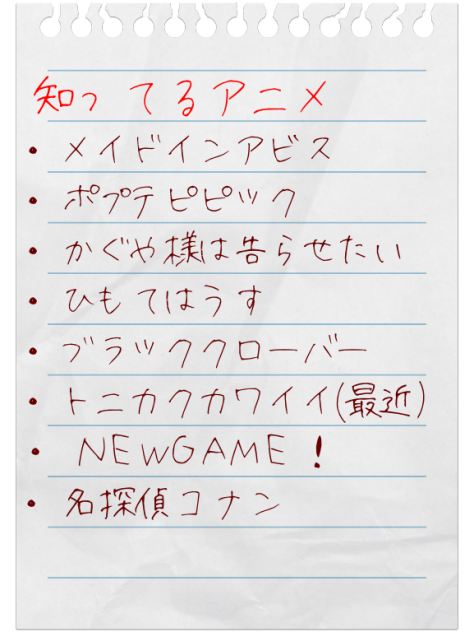 知ってるアニメ
・メイドインアビス
・ポプテピピック
・かぐや様は告らせたい
・ひもてはうす
・ブラッククローバー
・トニカクカワイイ(最近)
・NEWGAME!
・名探偵コナン